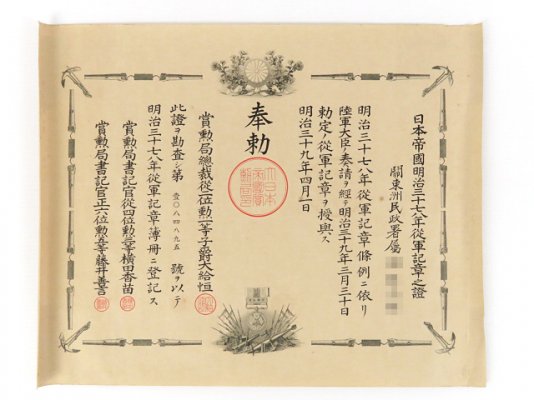 日本帝國明治三十七八年從軍記章之證
關東洲民政署屬
明治三十七八年從軍記章條例ニ依リ
陸軍大臣ノ奏請ヲ經テ明治三十九年三月三十日
勅定ノ從軍記章ヲ授與ス
明治三十九年四月一日
奉勅
大日本帝國賞勳局印
賞勳局總裁從二位勳一等子爵大給恒
此證ヲ勘査シ第壹〇八四八九五號ヲ以テ
明治三十七八年從軍記章簿冊ニ登記ス
賞勳局書記官從四位勳三等橫田香苗
賞勳局書記官正六位勳五等藤井善言